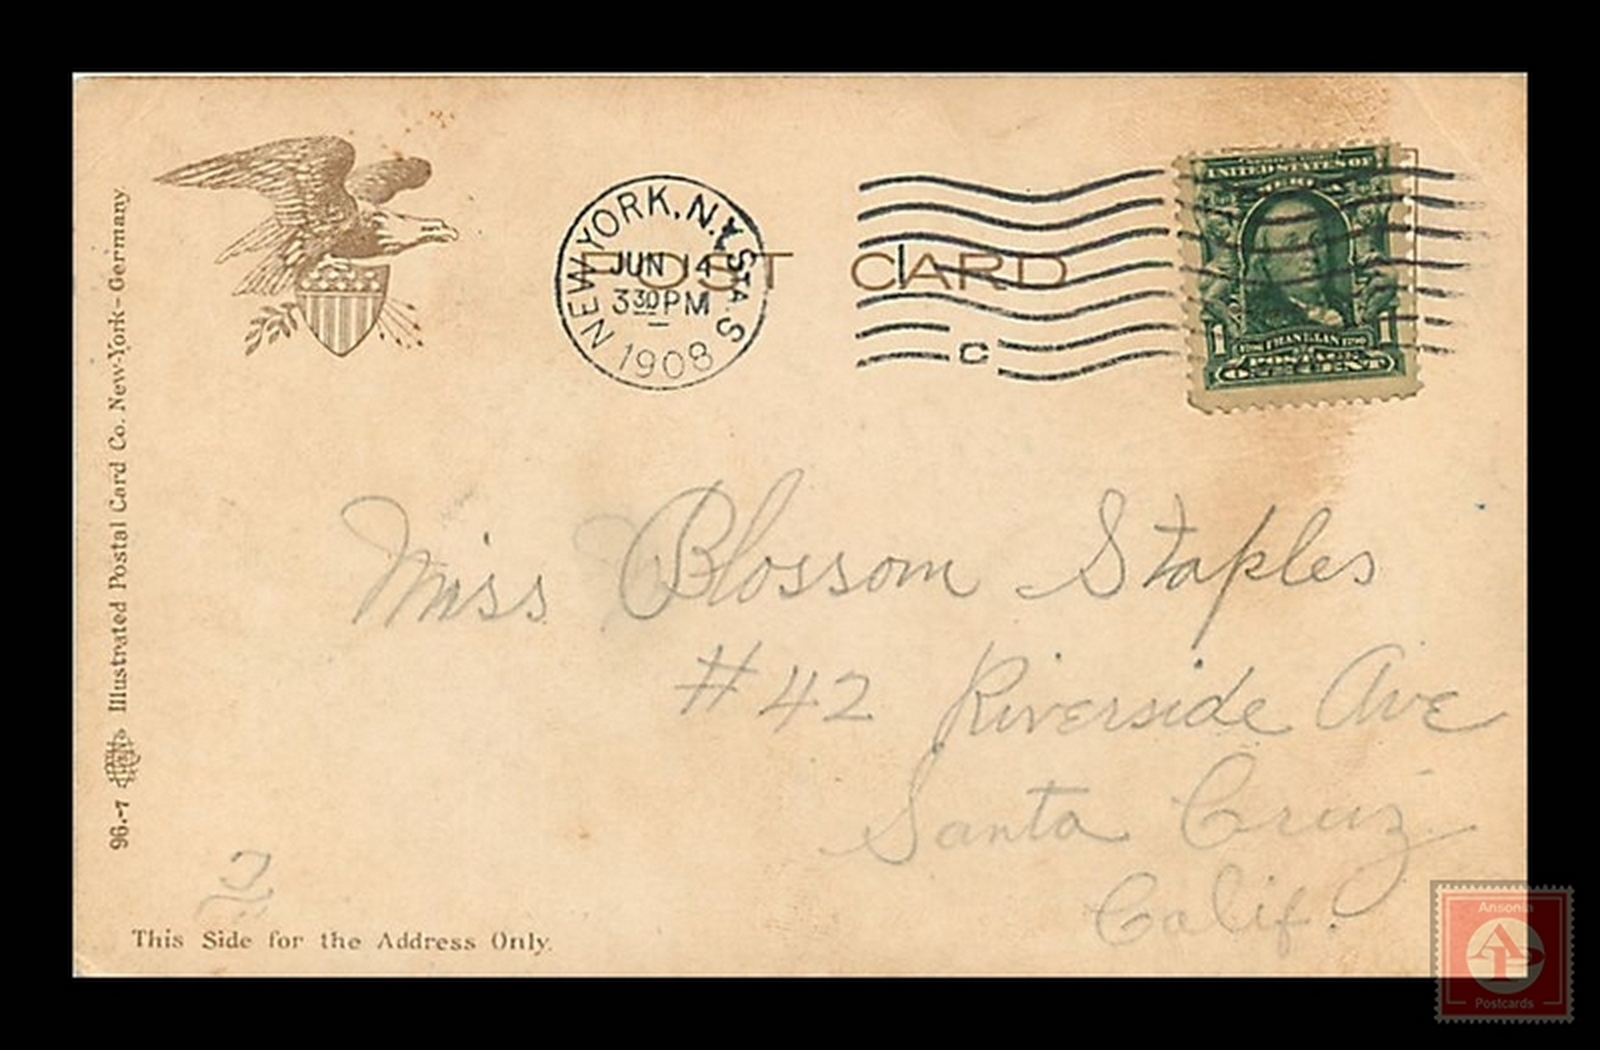 NEW YORK, N.Y. STA. S
JUN 14
3 30 PM
1908
POST CARD
1 C
UNITED STATES OF
1 FRANKLIN 1
POSTAGE
ONE CENT
Miss Blossom Staples
#42 Riverside Ave
Santa Cruz
Calif.
96.-7 Illustrated Postal Card Co. New-York-Germany
This Side for the Address Only.
Ansonia
AP
Postcards